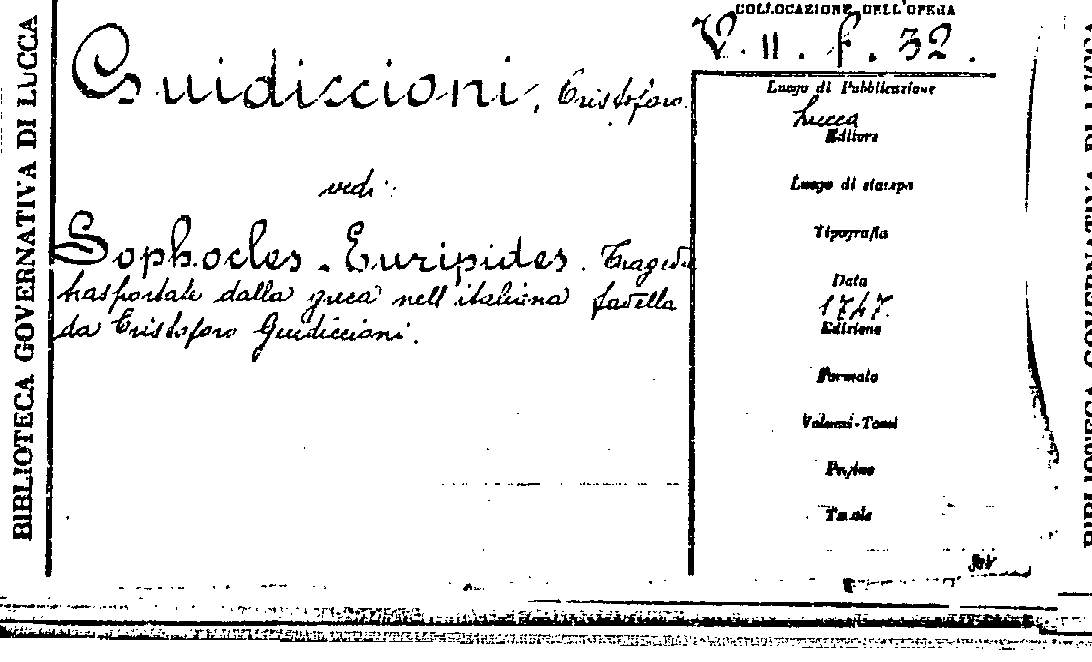 BIBLIOTECA GOVERNATIVA DI LUCCA
COLLOCAZIONE DELL'OPERA
V. II. f. 32.
Guidiccioni, Cristoforo.
vedi:
Sophocles. Euripides. Tragedie
trasportate dalla greca nell'italiana favella
da Cristoforo Guidiccioni.
Luogo di Pubblicazione
Lucca
Editore
Luogo di stampa
Tipografia
Data
1747.
Edizione
Formato
Volumi-Tomi
Pagine
Tavole